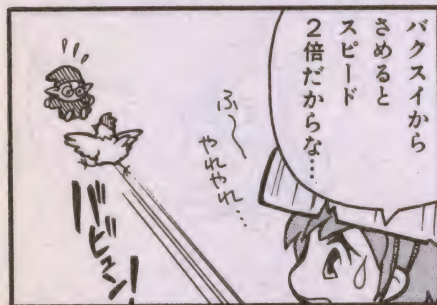 バクスイから
さめると
スピード
2倍だからな…
ふ〜
やれやれ…
バビューン!